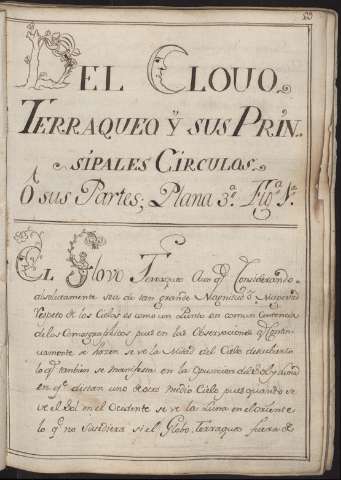 53
DEL CLOUO
TERRAQUEO ÿ SUS PRIN.
SÍPALES CÍRCULOS.
Ó sus Partes, Plana 3ª. Figª. 1ª.
EL Glovo Terraqueo Aunq̃ Considerando
absolutamente sea de tan grande Magnitud ô Magestad
respeto de los Cielos es como un Punto en comun Sentencia
de los Cosmographicos pues en las Observaciones q̃ Contin
uamente se hazen se ve la Mitad del Cielo descubierto
lo q̃ tambien se manifiesta en la Oposicion del Sol, y Luna
en qᵉ distan uno de otro medio Cielo pues quando se
ve el Sol en el Ocidente se ve la Luna en el oriente
lo qᵉ no Susediera si el Globo Terraqueo fuera de